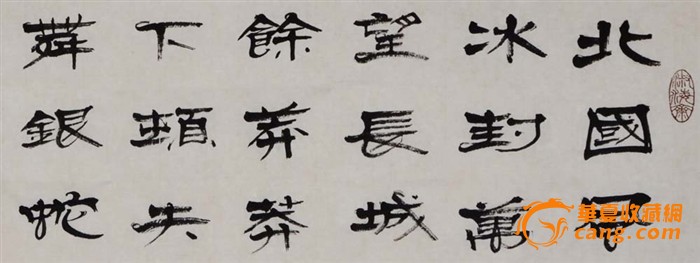 北國風
冰封萬
望長城
餘莽莽
下頓失
舞銀蛇
華夏收藏網
cang.com